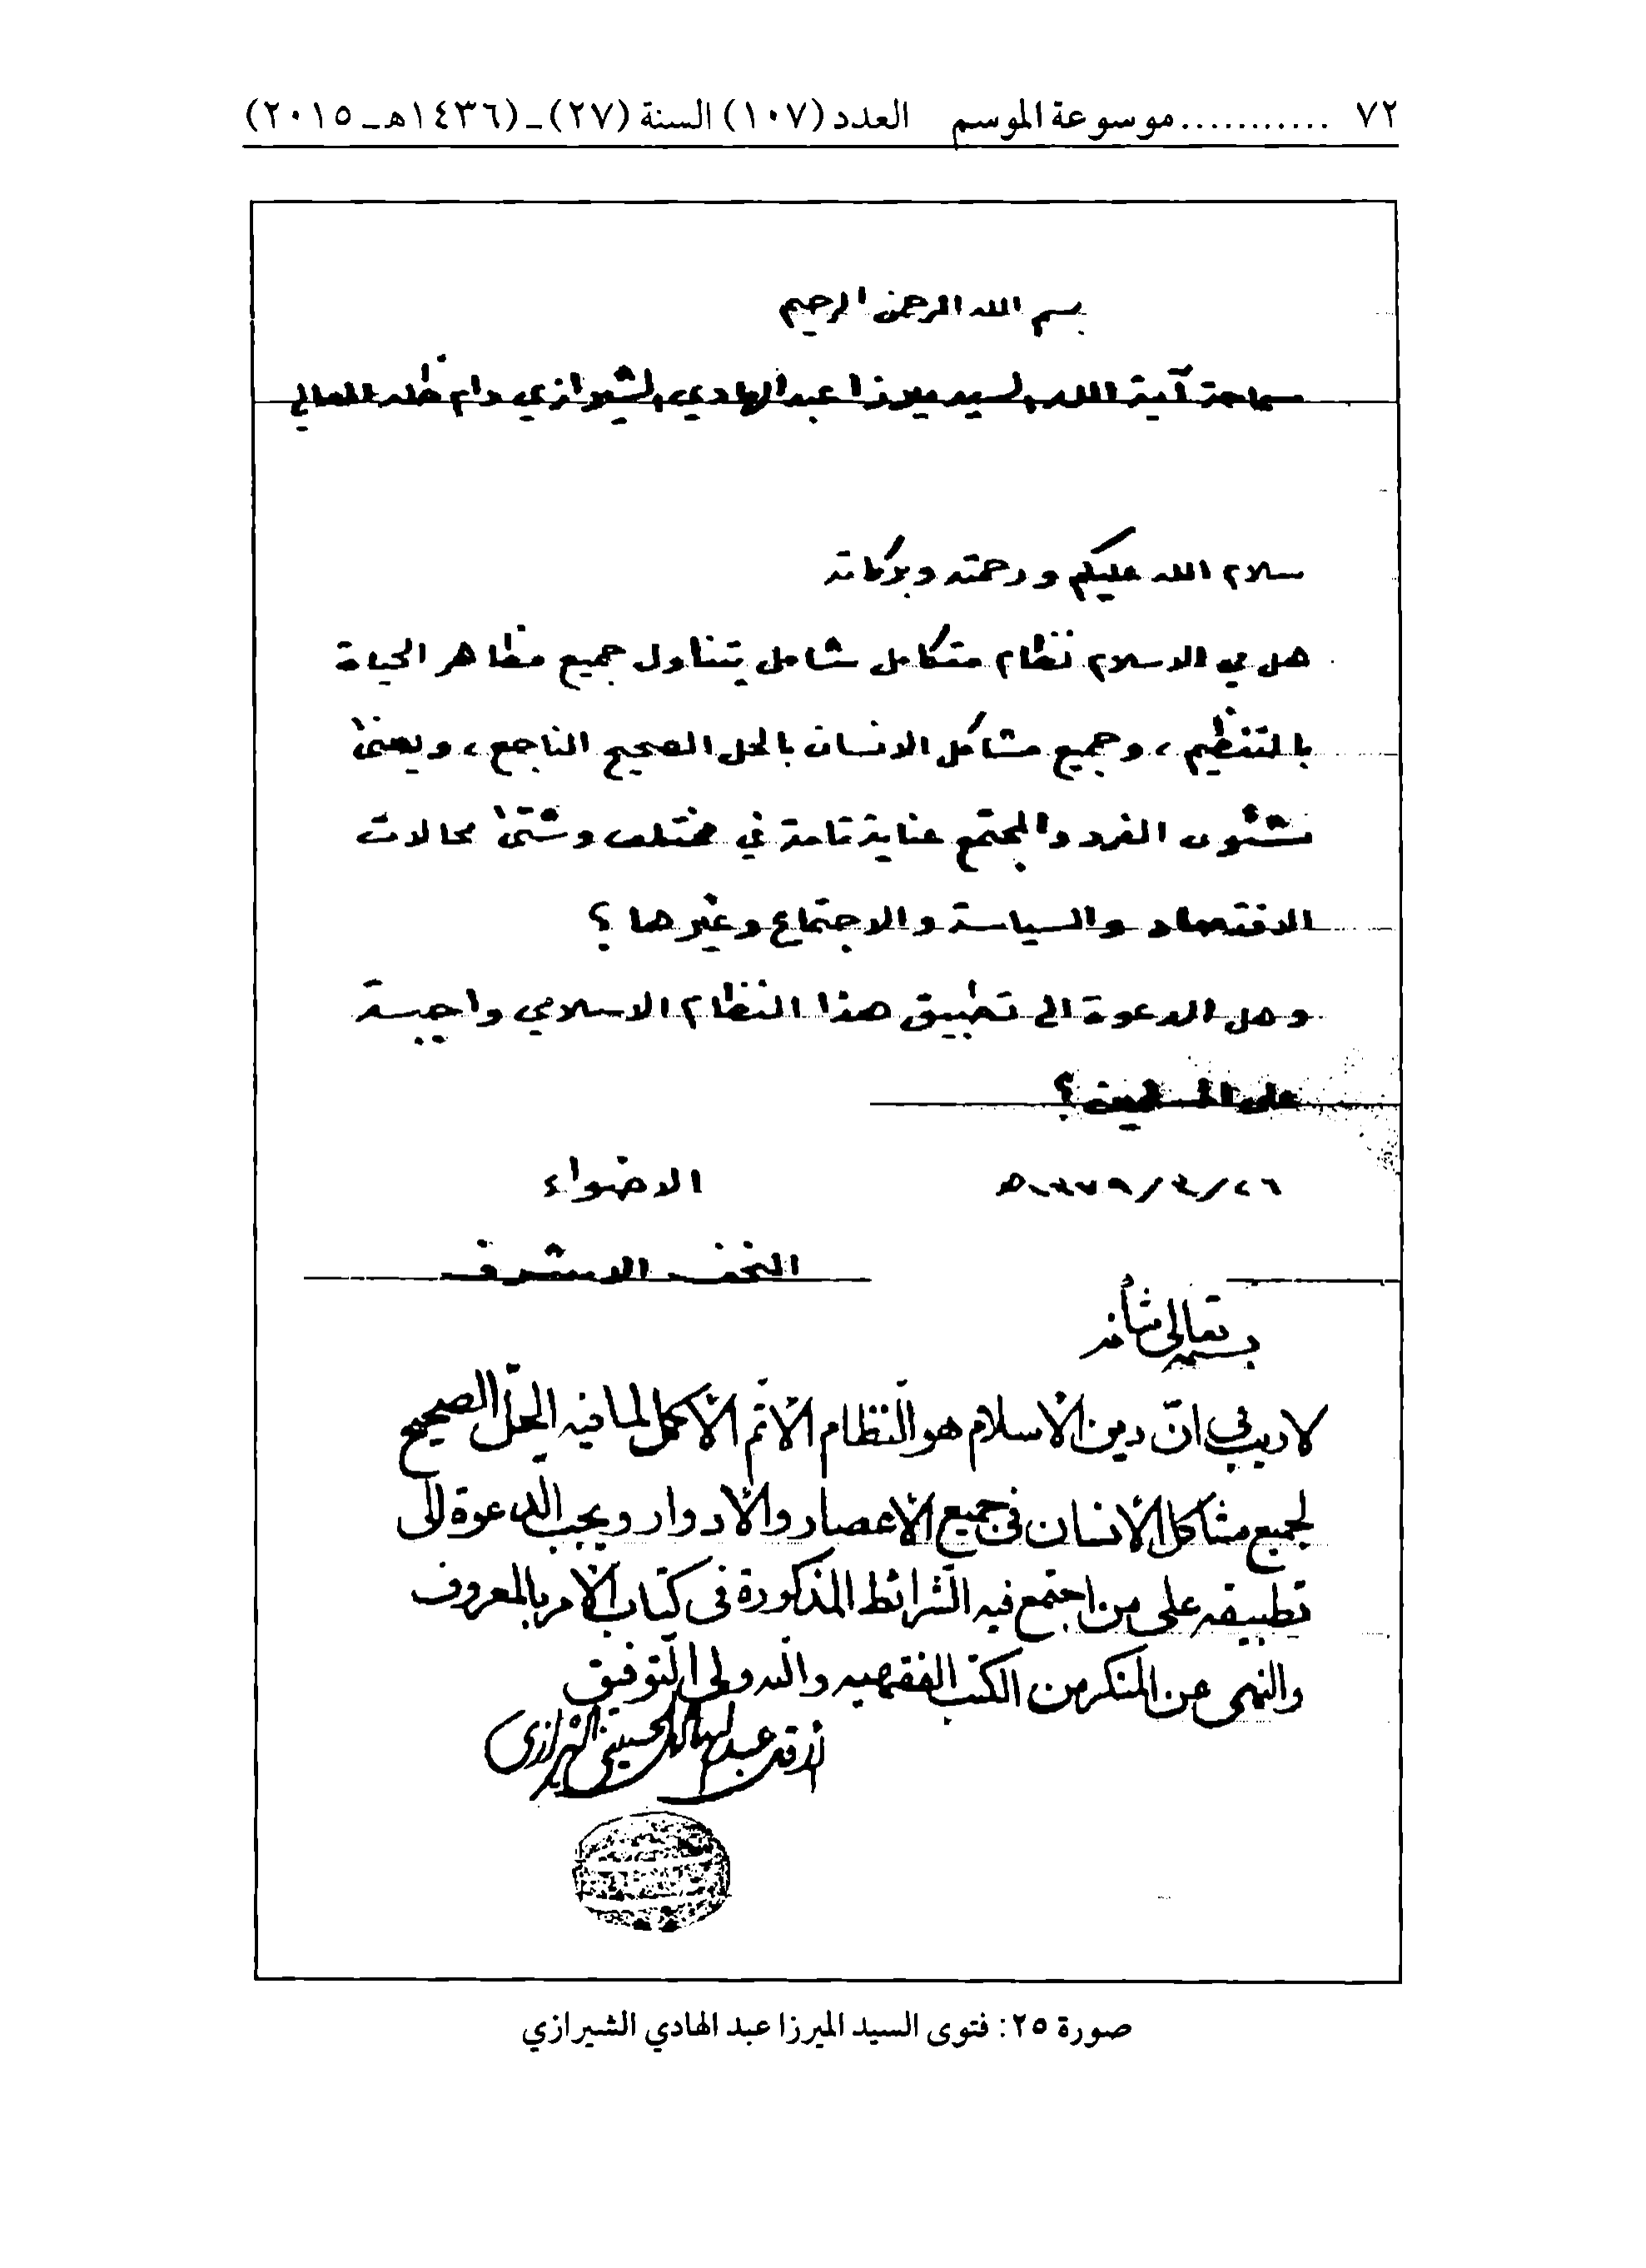 ٧٢ ............موسوعة الموسم العدد (١٠٧) السنة (٢٧)ـ (١٤٣٦هـ ـ ٢٠١٥)
بسم الله الرحمن الرحيم
سماحة آية الله السيد ميرزا عبد الهادي الشيرازي دام ظله العالي
سلام الله عليكم ورحمته وبركاته
هل في الاسلام نظام متكامل شامل يتناول جميع مظاهر الحياة
بالتنظيم ، وجميع مشاكل الانسان بالحل الصحيح الناجع ، ويعنى
بشئون الفرد والمجتمع عناية تامة في مختلف وشتى مجالات
الاقتصاد والسياسة والاجتماع وغيرها ؟
وهل الدعوة الى تطبيق هذا النظام الاسلامي واجبة
على المسلمين ؟
الاضواء
النجف الاشرف
بسمه تعالى شأنه
لا ريب في انّ دين الأسلام هو النّظام الأتمّ الأكمل لما فيه الحلّ الصحيح
لجميع مشاكل الأنسان في جميع الأعصار والأدوار ويجب الدعوة الى
تطبيقه على من اجتمع فيه الشّرائط المذكورة في كتاب الأمر بالمعروف
والنهى عن المنكر من الكتب الفقهيه والله ولى التّوفيق
عبد الهادي الحسيني الشيرازي
صورة ٢٥: فتوى السيد الميرزا عبد الهادي الشيرازي